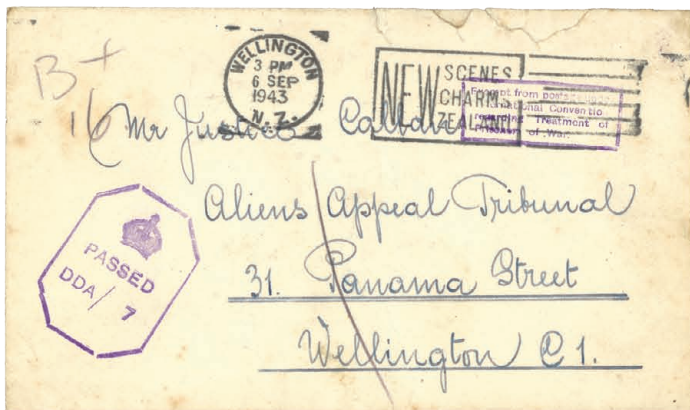 B+
16
WELLINGTON
3 PM
6 SEP
1943
N.Z.
NEW SCENES
CHARMS
ZEALAND
Exempt from postage under
International Conventio
Treatment of
Prisoners of War.
Mr Justice Callan
Aliens Appeal Tribunal
31. Panama Street
Wellington C1.
PASSED
DDA/7